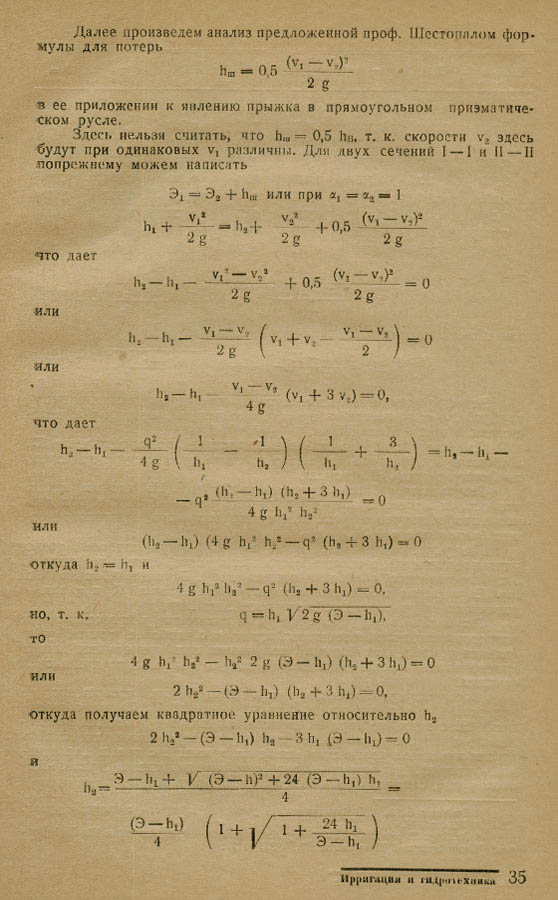 Далее произведем анализ предложенной проф. Шестопалом фор-
мулы для потерь
hш = 0,5 (v₁ — v₂)² / 2 g
в ее приложении к явлению прыжка в прямоугольном призматиче-
ском русле.
Здесь нельзя считать, что hш = 0,5 hв, т. к. скорости v₂ здесь
будут при одинаковых v₁ различны. Для двух сечений I — I и II — II
попрежнему можем написать
Э₁ = Э₂ + hш или при α₁ = α₂ = 1
h₁ + v₁² / 2 g = h₂ + v₂² / 2 g + 0,5 (v₁ — v₂)² / 2 g
что дает
h₂ — h₁ — (v₁² — v₂²) / 2 g + 0,5 (v₁ — v₂)² / 2 g = 0
или
h₂ — h₁ — (v₁ — v₂) / 2 g ( v₁ + v₂ — (v₁ — v₂) / 2 ) = 0
или
h₂ — h₁ — (v₁ — v₂) / 4 g (v₁ + 3 v₂) = 0,
что дает
h₂ — h₁ — q² / 4 g ( 1 / h₁ — 1 / h₂ ) ( 1 / h₁ + 3 / h₂ ) = h₂ — h₁ —
— q² (h₂ — h₁) (h₂ + 3 h₁) / 4 g h₁² h₂² = 0
или
(h₂ — h₁) (4 g h₁² h₂² — q² (h₂ + 3 h₁) = 0
откуда h₂ = h₁ и
4 g h₁² h₂² — q² (h₂ + 3 h₁) = 0,
но, т. к. q = h₁ √2 g (Э — h₁),
то
4 g h₁² h₂² — h₁² 2 g (Э — h₁) (h₂ + 3 h₁) = 0
или
2 h₂² — (Э — h₁) (h₂ + 3 h₁) = 0,
откуда получаем квадратное уравнение относительно h₂
2 h₂² — (Э — h₁) h₂ — 3 h₁ (Э — h₁) = 0
и
h₂ = Э — h₁ + √ (Э — h)² + 24 (Э — h₁) h₁ / 4 =
(Э — h₁) / 4 ( 1 + √ 1 + 24 h₁ / Э — h₁ )
Ирригация и гидротехника 35